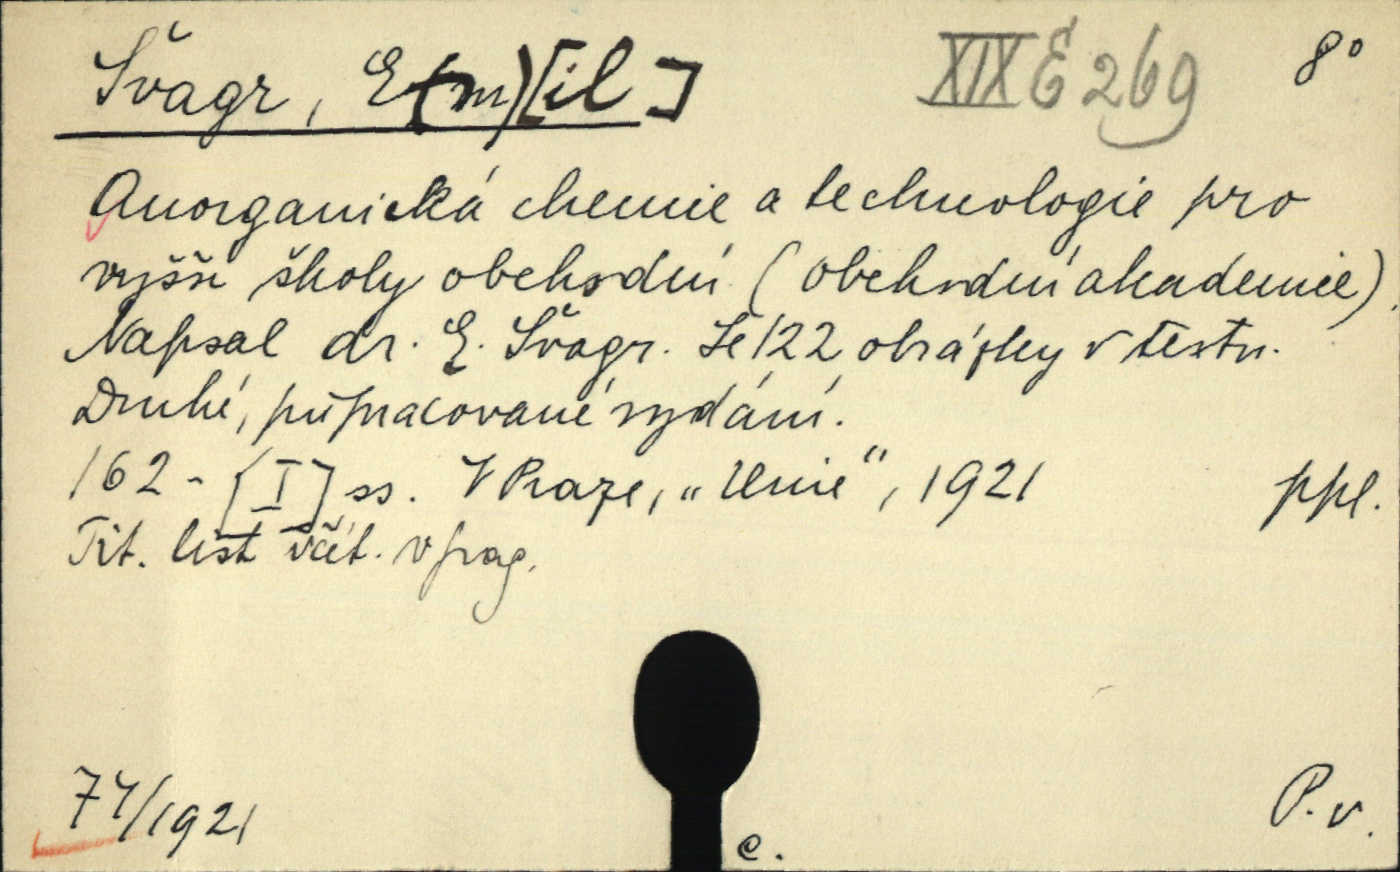 Švagr, E(m)[il]
XIX E 269
8°
Anorganická chemie a technologie pro
vyšší školy obchodní (obchodní akademie).
Napsal dr. E. Švagr. Se 122 obrázky v textu.
Druhé, přepracované vydání.
162 - [I] ss. V Praze, „Unie“, 1921
ppl.
Tit. list včít. v pag.
74/1921
P. v.
c.